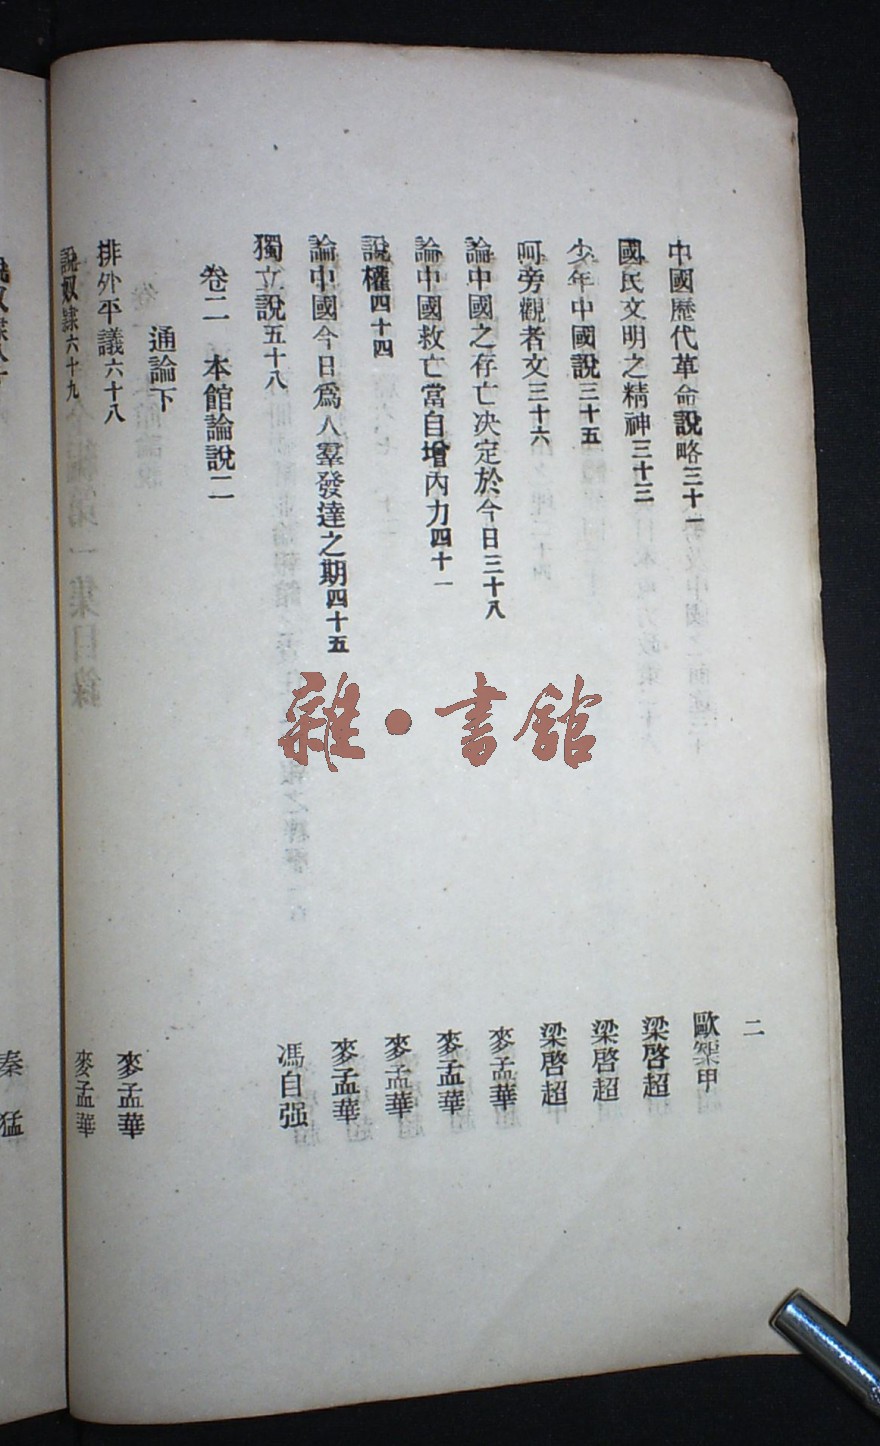 二
中國歷代革命說略三十一 歐榘甲
國民文明之精神三十三 梁啓超
少年中國說三十五 梁啓超
呵旁觀者文三十六 梁啓超
論中國之存亡决定於今日三十八 麥孟華
論中國救亡當自增內力四十一 麥孟華
說權四十四 麥孟華
論中國今日爲人羣發達之期四十五 麥孟華
獨立說五十八 馮自强
卷二 本館論說二
通論下
排外平議六十八 麥孟華
說奴隸六十九 麥孟華
秦猛
雜·書館